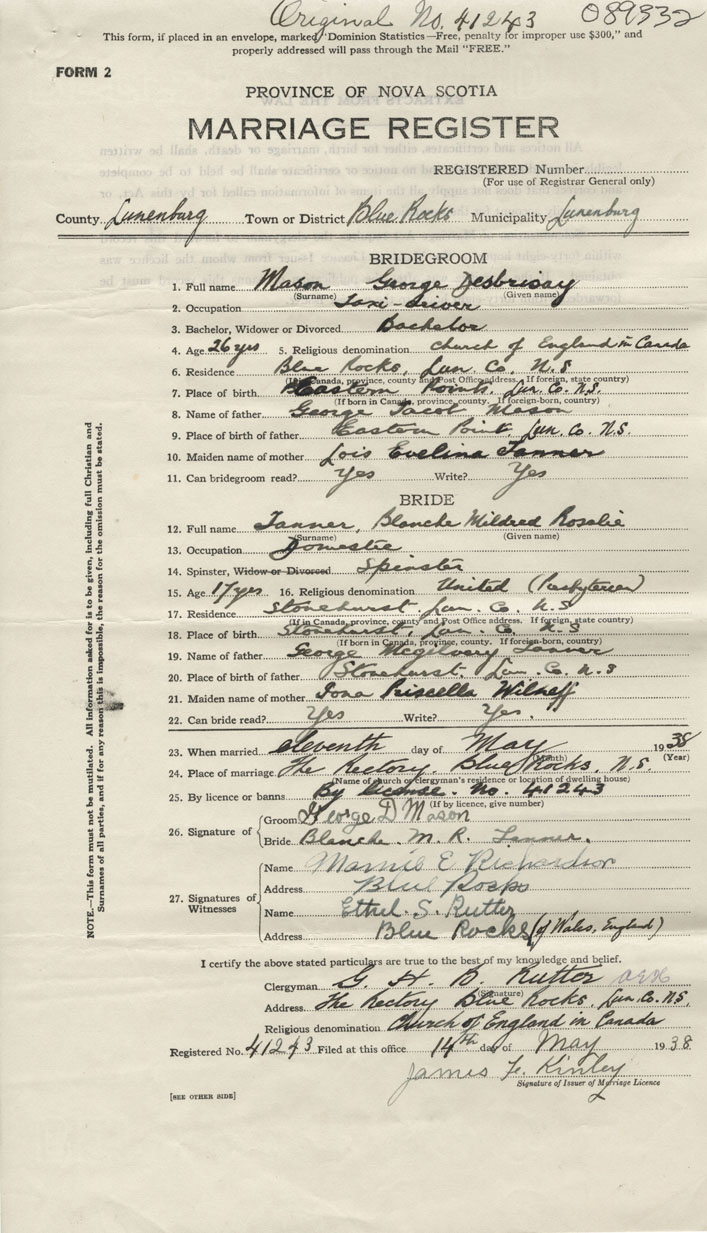 Original No. 41243 089332
This form, if placed in an envelope, marked, "Dominion Statistics—Free, penalty for improper use $300," and
properly addressed will pass through the Mail "FREE."
FORM 2
PROVINCE OF NOVA SCOTIA
MARRIAGE REGISTER
REGISTERED Number
(For use of Registrar General only)
County Lunenburg Town or District Blue Rocks Municipality Lunenburg
BRIDEGROOM
1. Full name Mason George Desbrisay
(Surname) (Given name)
2. Occupation Taxi-driver
3. Bachelor, Widower or Divorced Bachelor
4. Age 26 yrs 5. Religious denomination Church of England in Canada
6. Residence Blue Rocks, Lun. Co. N.S
(If in Canada, province, county and Post Office address. If foreign, state country)
7. Place of birth Eastern Points. Lun. Co. N.S.
(If born in Canada, province, county. If foreign-born, country)
8. Name of father George Jacob Mason
9. Place of birth of father Eastern Point Lun. Co. N.S.
10. Maiden name of mother Lois Evelina Tanner
11. Can bridegroom read? Yes Write? Yes
BRIDE
12. Full name Tanner, Blanche Mildred Rosalie
(Surname) (Given name)
13. Occupation Domestic
14. Spinster, Widow or Divorced Spinster
15. Age 17 yrs 16. Religious denomination United (Presbyterian)
17. Residence Stonehurst Lun. Co. N.S
(If in Canada, province, county and Post Office address. If foreign, state country)
18. Place of birth Stonehurst, Lun. Co. N.S
(If born in Canada, province, county. If foreign-born, country)
19. Name of father George Mcgilvery Tanner
20. Place of birth of father Stonehurst. Lun. Co. N.S
21. Maiden name of mother Iona Priscella Wilneff
22. Can bride read? Yes Write? Yes.
23. When married eleventh day of May 1938
(Month) (Year)
24. Place of marriage The Rectory, Blue Rocks, N.S.
(Name of church or clergyman's residence or location of dwelling house)
25. By licence or banns By license. No. 41243
(If by licence, give number)
26. Signature of
Groom George D Mason
Bride Blanche M. R. Tanner.
27. Signatures of Witnesses
Name Marnie E Richardson
Address Blue Rocks
Name Ethel. S. Rutter
Address Blue Rocks (of Wales, England)
I certify the above stated particulars are true to the best of my knowledge and belief.
Clergyman G. H. B. Rutter
(Signature)
Address The Rectory Blue Rocks, Lun. Co. N.S.
Religious denomination Church of England in Canada
Registered No. 41243 Filed at this office 14th day of May 1938
James F. Kinley
Signature of Issuer of Marriage Licence
[SEE OTHER SIDE]
NOTE.—This form must not be mutilated. All information asked for is to be given, including full Christian and
Surnames of all parties, and if for any reason this is impossible, the reason for the omission must be stated.